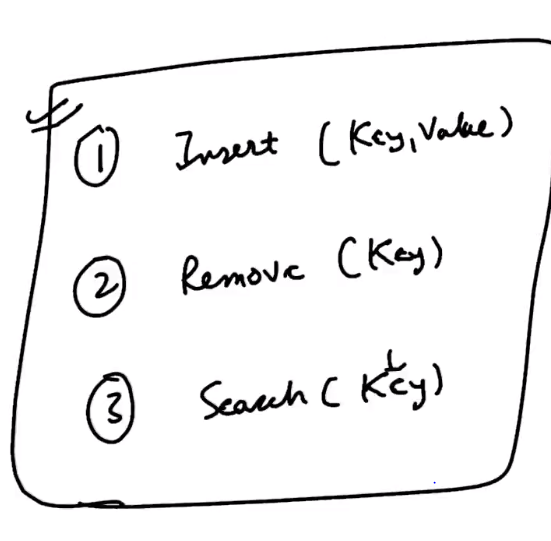 1 Insert (Key, Value)
2 Remove (Key)
3 Search (Key)